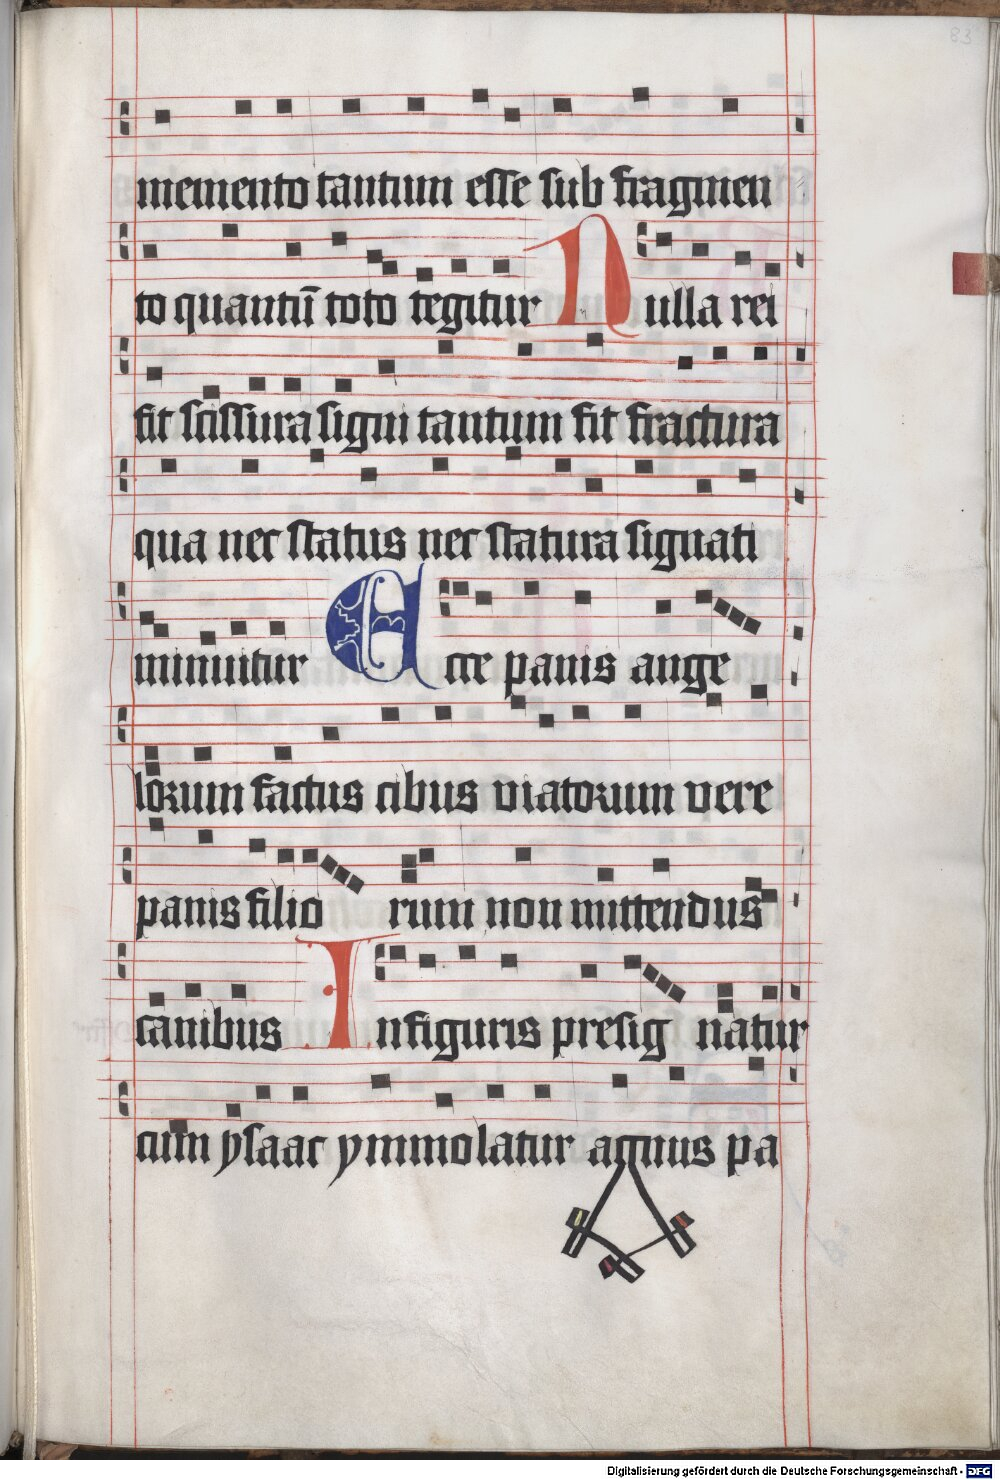 83
memento tantum esse sub fragmen
to quantū toto tegitur Nulla rei
fit scissura signi tantum fit fractura
qua nec status nec statura signati
minuitur Ecce panis ange
lorum factus cibus viatorum vere
panis filio rum non mittendus
canibus In figuris presig natur
cum ysaac ymmolatur agnus pa
Digitalisierung gefördert durch die Deutsche Forschungsgemeinschaft - DFG